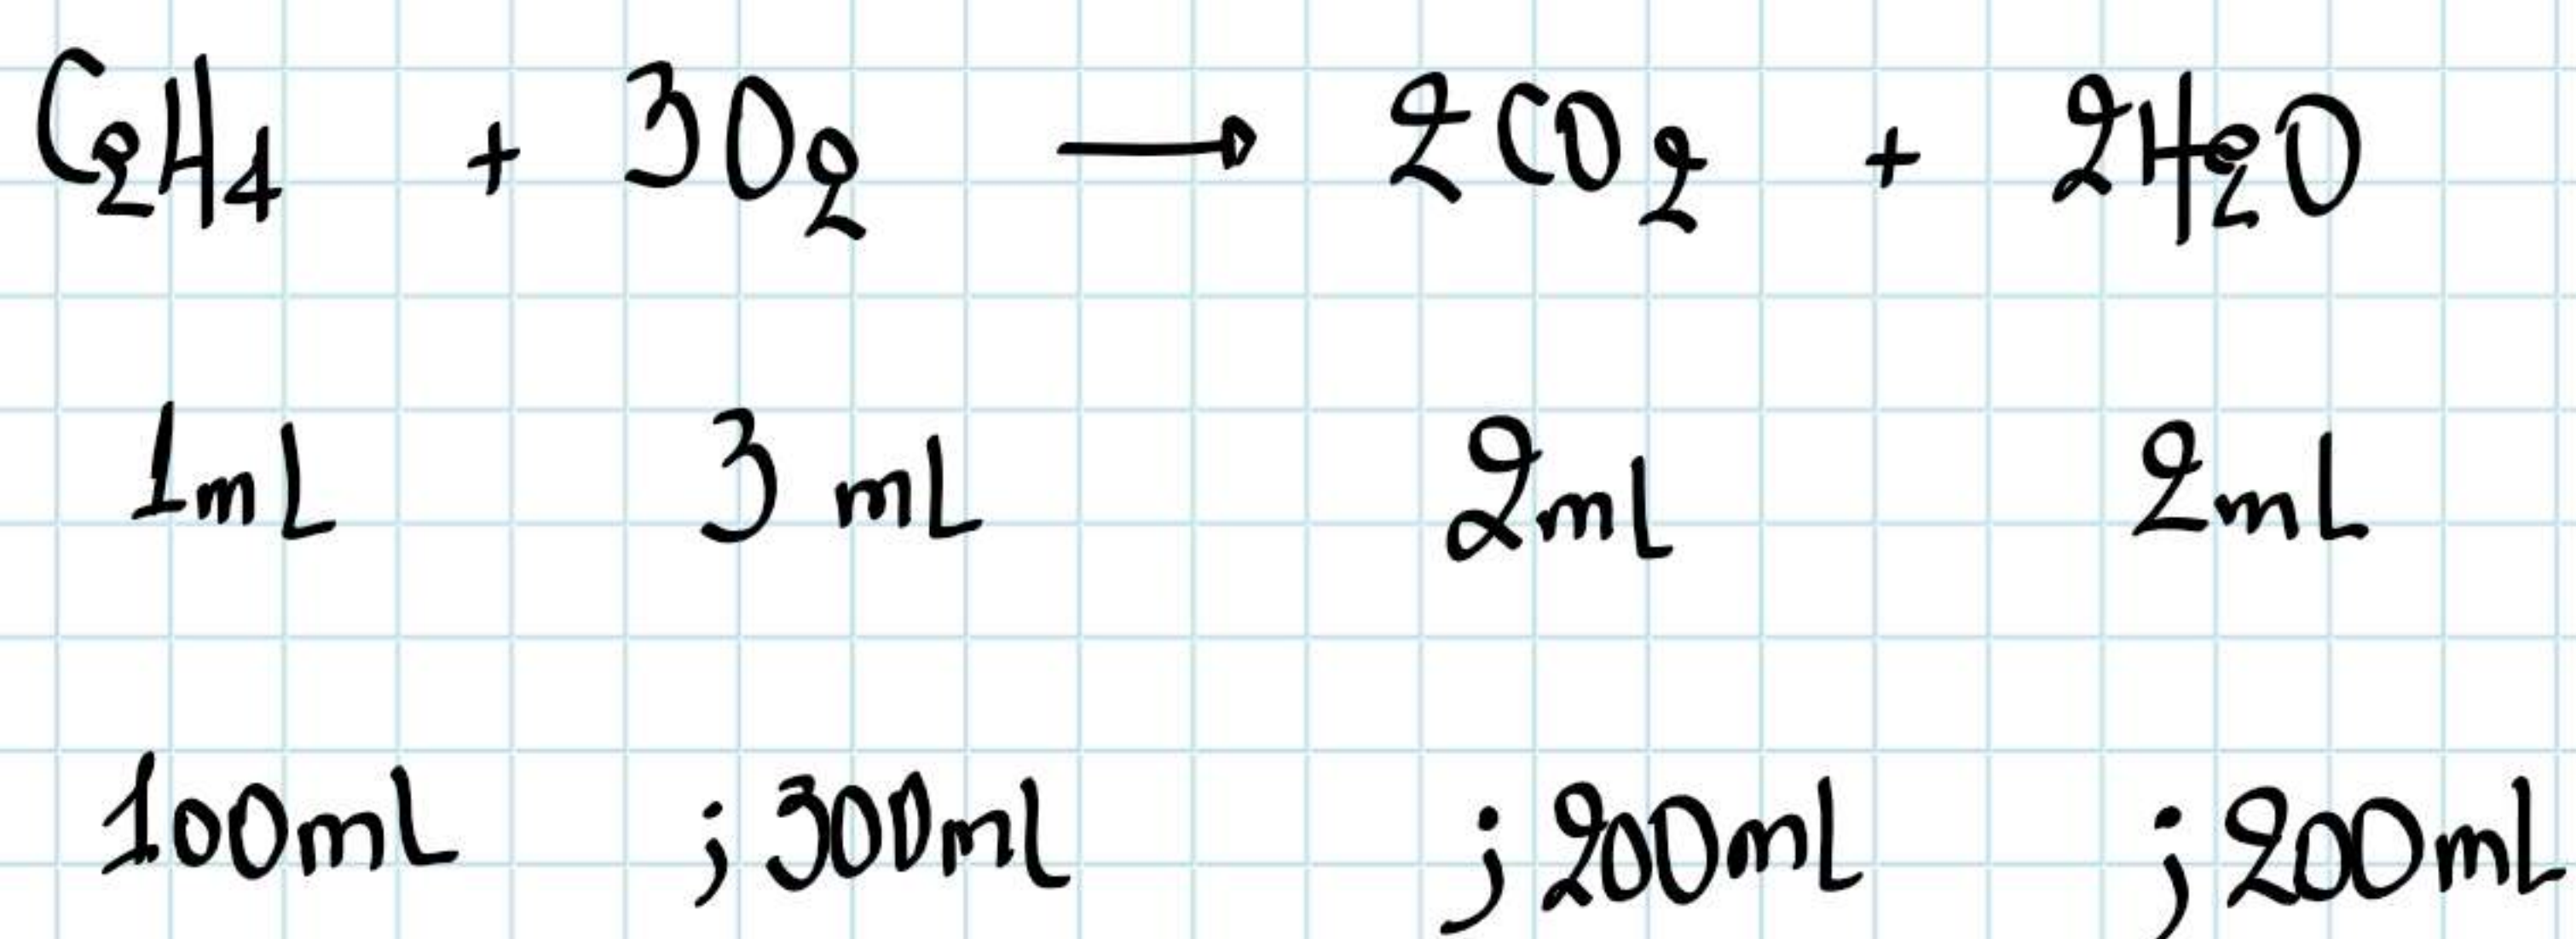 C₂H₄ + 3O₂ → 2CO₂ + 2H₂O
1mL 3 mL 2mL 2mL
100mL ; 300mL ; 200mL ; 200mL